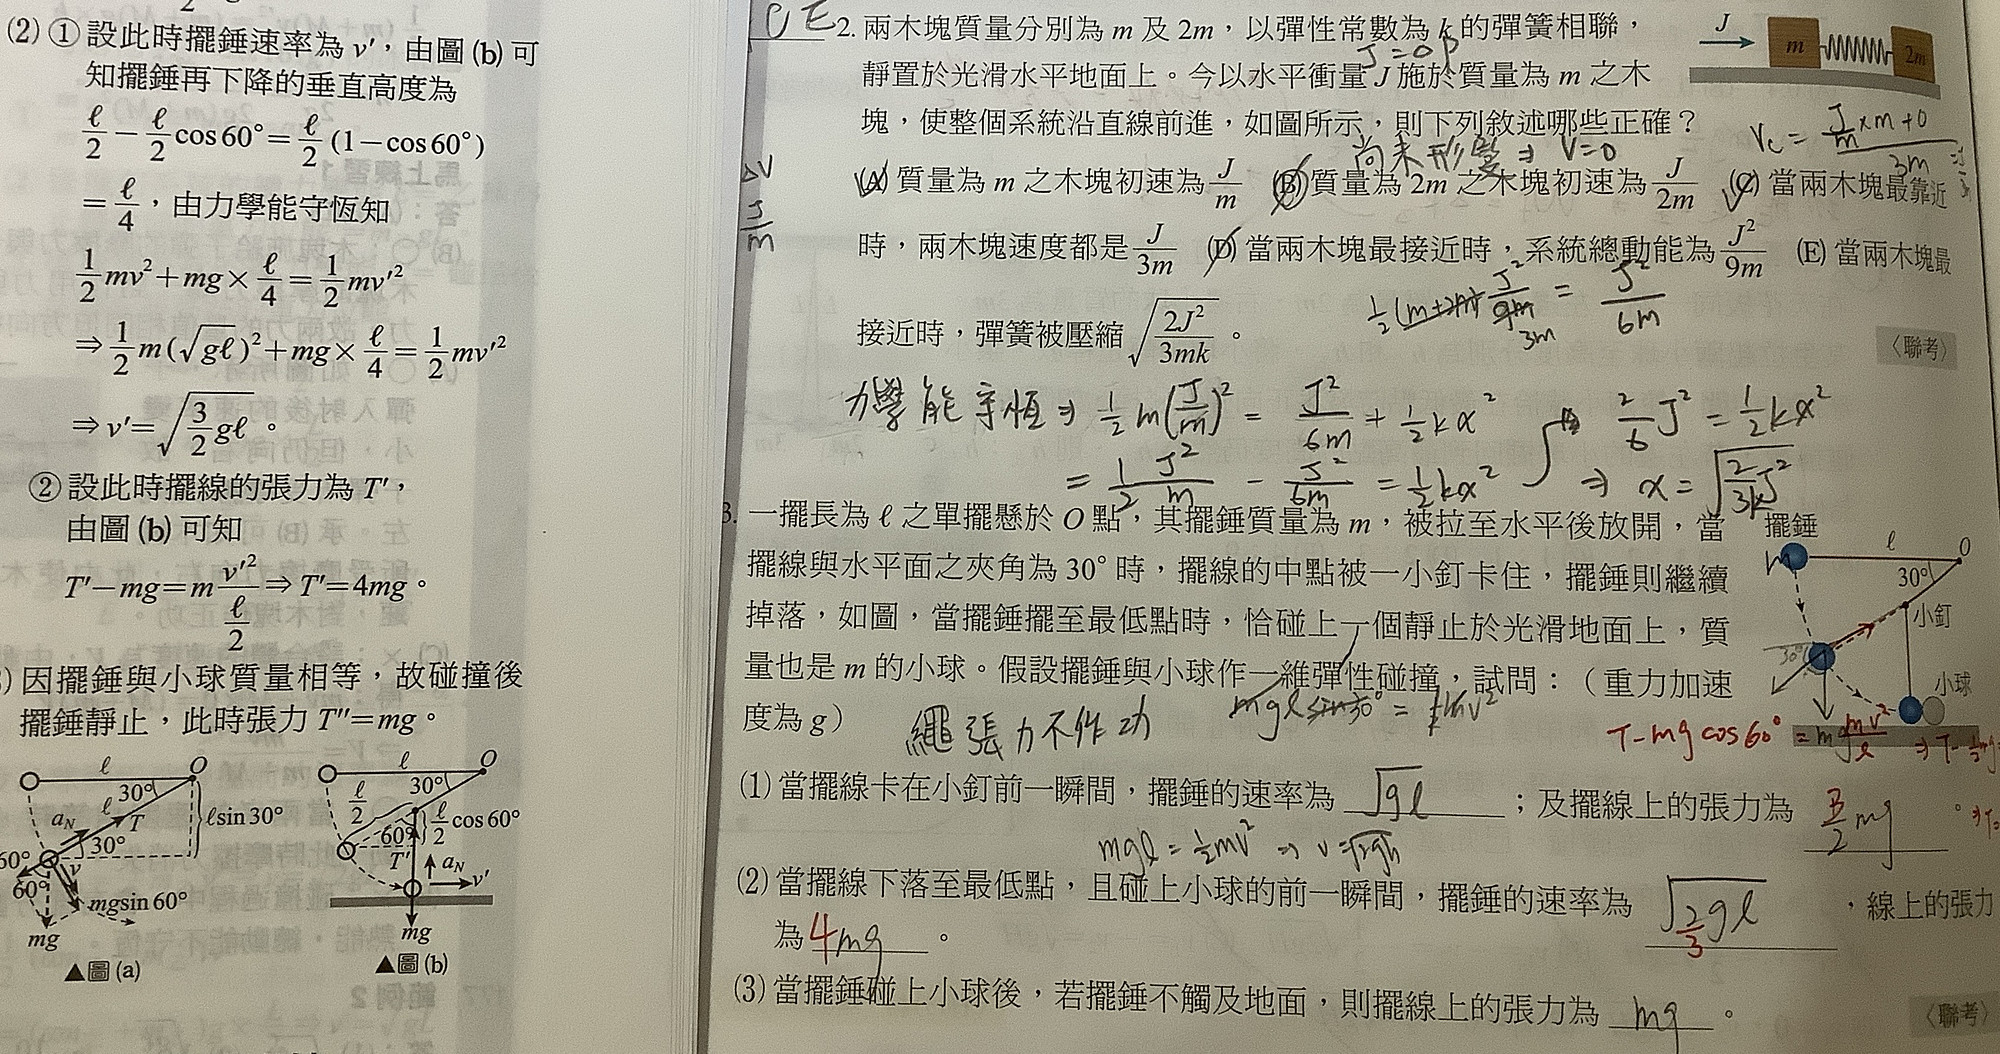 (2) ① 設此時擺錘速率為 v′,由圖(b)可
知擺錘再下降的垂直高度為
ℓ/2 − ℓ/2 cos60° = ℓ/2 (1−cos60°)
= ℓ/4,由力學能守恆知
1/2 mv² + mg × ℓ/4 = 1/2 mv′²
⇒ 1/2 m(√gℓ)² + mg × ℓ/4 = 1/2 mv′²
⇒ v′ = √(3/2 gℓ) 。
② 設此時擺線的張力為 T′,
由圖(b)可知
T′ − mg = m v′²/(ℓ/2) ⇒ T′ = 4mg 。
) 因擺錘與小球質量相等,故碰撞後
擺錘靜止,此時張力 T″ = mg 。
ℓ O 30° ℓ T aN 30° ℓsin30° 60° 60° v mgsin60° mg
▲圖(a)
ℓ O 30° ℓ/2 ℓ/2 cos60° 60° T′ aN v′ mg
▲圖(b)
CE 2. 兩木塊質量分別為 m 及 2m,以彈性常數為 k 的彈簧相聯,
J m 2m
J = ΔP
靜置於光滑水平地面上。今以水平衝量 J 施於質量為 m 之木
塊,使整個系統沿直線前進,如圖所示,則下列敘述哪些正確?
Vc = (J/m × m + 0)/3m
尚未形變 ⇒ V=0
ΔV
J/m
(A) 質量為 m 之木塊初速為 J/m (B) 質量為 2m 之木塊初速為 J/2m (C) 當兩木塊最靠近
時,兩木塊速度都是 J/3m (D) 當兩木塊最接近時,系統總動能為 J²/9m (E) 當兩木塊最
1/2 (m+2m) J²/9m = J²/6m
3m
接近時,彈簧被壓縮 √(2J²/3mk) 。
〈聯考〉
力學能守恆 ⇒ 1/2 m(J/m)² = J²/6m + 1/2 kx²
= 1/2 J²/m − J²/6m = 1/2 kx²
2/6 J² = 1/2 kx²
⇒ x = √(2/3k J²)
3. 一擺長為 ℓ 之單擺懸於 O 點,其擺錘質量為 m,被拉至水平後放開,當
擺線與水平面之夾角為 30° 時,擺線的中點被一小釘卡住,擺錘則繼續
掉落,如圖,當擺錘擺至最低點時,恰碰上一個靜止於光滑地面上,質
量也是 m 的小球。假設擺錘與小球作一維彈性碰撞,試問:(重力加速
度為 g)
擺錘 m ℓ O 30° 小釘 30° 小球
繩張力不作功
mgℓ sin30° = 1/2 mv²
T − mg cos60° = mv²/ℓ
(1) 當擺線卡在小釘前一瞬間,擺錘的速率為 √gℓ ;及擺線上的張力為 3/2 mg 。
mgℓ = 1/2 mv² ⇒ v = √2gh
(2) 當擺線下落至最低點,且碰上小球的前一瞬間,擺錘的速率為 √(2/3 gℓ) ,線上的張力
為 4mg 。
(3) 當擺錘碰上小球後,若擺錘不觸及地面,則擺線上的張力為 mg 。
〈聯考〉